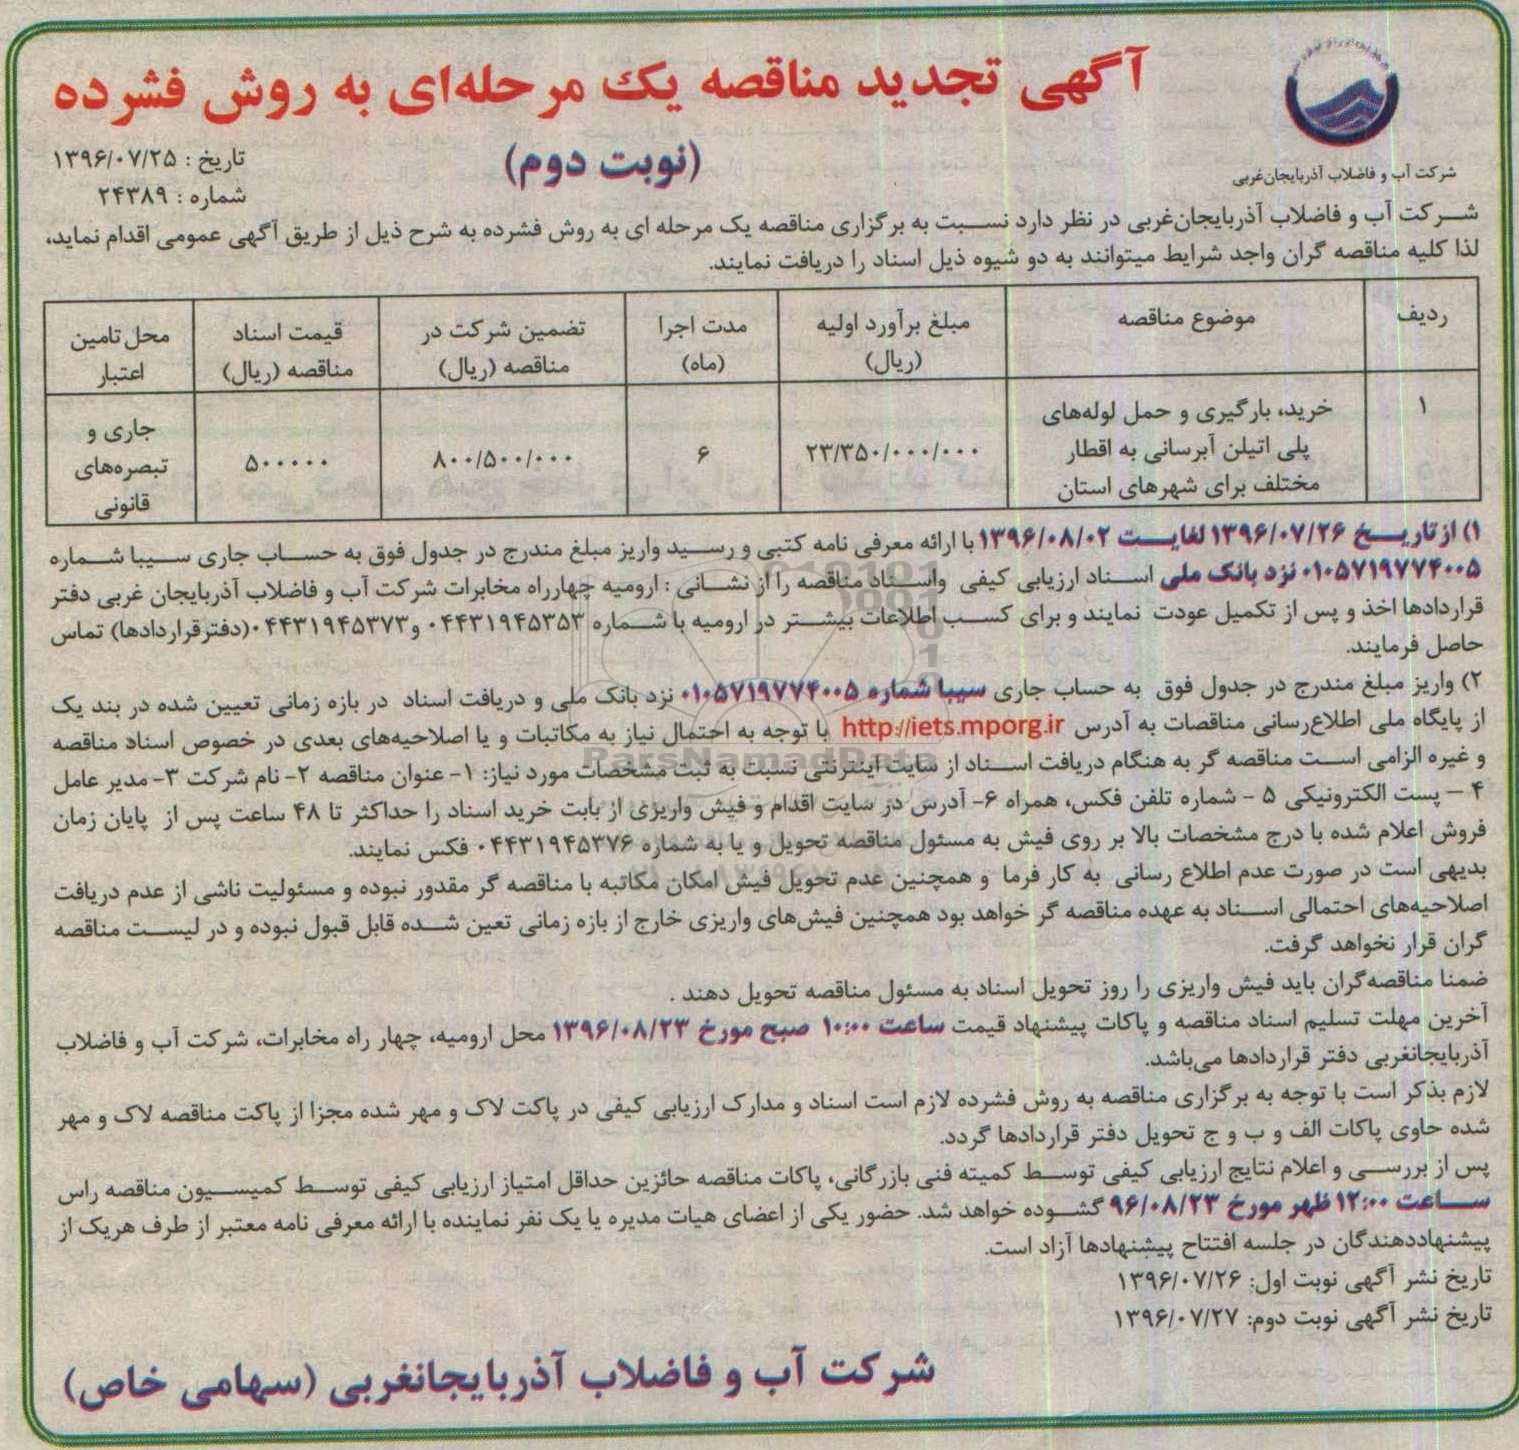 آگهی تجدید مناقصه یک مرحله‌ای به روش فشرده
(نوبت دوم)
تاریخ : ۱۳۹۶/۰۷/۲۵
شماره : ۲۴۳۸۹
شرکت آب و فاضلاب آذربایجان‌غربی
شرکت آب و فاضلاب آذربایجان‌غربی در نظر دارد نسبت به برگزاری مناقصه یک مرحله ای به روش فشرده به شرح ذیل از طریق آگهی عمومی اقدام نماید،
لذا کلیه مناقصه گران واجد شرایط میتوانند به دو شیوه ذیل اسناد را دریافت نمایند.
ردیف | موضوع مناقصه | مبلغ برآورد اولیه (ریال) | مدت اجرا (ماه) | تضمین شرکت در مناقصه (ریال) | قیمت اسناد مناقصه (ریال) | محل تامین اعتبار
۱ | خرید، بارگیری و حمل لوله‌های پلی اتیلن آبرسانی به اقطار مختلف برای شهرهای استان | ۲۳/۳۵۰/۰۰۰/۰۰۰ | ۶ | ۸۰۰/۵۰۰/۰۰۰ | ۵۰۰۰۰۰ | جاری و تبصره‌های قانونی
۱) از تاریخ ۱۳۹۶/۰۷/۲۶ لغایت ۱۳۹۶/۰۸/۰۲ با ارائه معرفی نامه کتبی و رسید واریز مبلغ مندرج در جدول فوق به حساب جاری سیبا شماره
۰۱۰۵۷۱۹۷۷۴۰۰۵ نزد بانک ملی اسناد ارزیابی کیفی واسناد مناقصه را از نشانی : ارومیه چهارراه مخابرات شرکت آب و فاضلاب آذربایجان غربی دفتر
قراردادها اخذ و پس از تکمیل عودت نمایند و برای کسب اطلاعات بیشتر در ارومیه با شماره ۰۴۴۳۱۹۴۵۳۵۳ و۰۴۴۳۱۹۴۵۳۷۳(دفترقراردادها) تماس
حاصل فرمایند.
۲) واریز مبلغ مندرج در جدول فوق به حساب جاری سیبا شماره ۰۱۰۵۷۱۹۷۷۴۰۰۵ نزد بانک ملی و دریافت اسناد در بازه زمانی تعیین شده در بند یک
از پایگاه ملی اطلاع‌رسانی مناقصات به آدرس http://iets.mporg.ir با توجه به احتمال نیاز به مکاتبات و یا اصلاحیه‌های بعدی در خصوص اسناد مناقصه
و غیره الزامی است مناقصه گر به هنگام دریافت اسناد از سایت اینترنتی نسبت به ثبت مشخصات مورد نیاز: ۱- عنوان مناقصه ۲- نام شرکت ۳- مدیر عامل
۴ – پست الکترونیکی ۵ - شماره تلفن فکس، همراه ۶- آدرس در سایت اقدام و فیش واریزی از بابت خرید اسناد را حداکثر تا ۴۸ ساعت پس از پایان زمان
فروش اعلام شده با درج مشخصات بالا بر روی فیش به مسئول مناقصه تحویل و یا به شماره ۰۴۴۳۱۹۴۵۳۷۶ فکس نمایند.
بدیهی است در صورت عدم اطلاع رسانی به کار فرما و همچنین عدم تحویل فیش امکان مکاتبه با مناقصه گر مقدور نبوده و مسئولیت ناشی از عدم دریافت
اصلاحیه‌های احتمالی اسناد به عهده مناقصه گر خواهد بود همچنین فیش‌های واریزی خارج از بازه زمانی تعین شده قابل قبول نبوده و در لیست مناقصه
گران قرار نخواهد گرفت.
ضمنا مناقصه‌گران باید فیش واریزی را روز تحویل اسناد به مسئول مناقصه تحویل دهند .
آخرین مهلت تسلیم اسناد مناقصه و پاکات پیشنهاد قیمت ساعت ۱۰:۰۰ صبح مورخ ۱۳۹۶/۰۸/۲۳ محل ارومیه، چهار راه مخابرات، شرکت آب و فاضلاب
آذربایجانغربی دفتر قراردادها می‌باشد.
لازم بذکر است با توجه به برگزاری مناقصه به روش فشرده لازم است اسناد و مدارک ارزیابی کیفی در پاکت لاک و مهر شده مجزا از پاکت مناقصه لاک و مهر
شده حاوی پاکات الف و ب و ج تحویل دفتر قراردادها گردد.
پس از بررسی و اعلام نتایج ارزیابی کیفی توسط کمیته فنی بازرگانی، پاکات مناقصه حائزین حداقل امتیاز ارزیابی کیفی توسط کمیسیون مناقصه راس
ساعت ۱۲:۰۰ ظهر مورخ ۹۶/۰۸/۲۳ گشوده خواهد شد. حضور یکی از اعضای هیات مدیره یا یک نفر نماینده با ارائه معرفی نامه معتبر از طرف هریک از
پیشنهاددهندگان در جلسه افتتاح پیشنهادها آزاد است.
تاریخ نشر آگهی نوبت اول: ۱۳۹۶/۰۷/۲۶
تاریخ نشر آگهی نوبت دوم: ۱۳۹۶/۰۷/۲۷
شرکت آب و فاضلاب آذربایجانغربی (سهامی خاص)
ParsNamadData